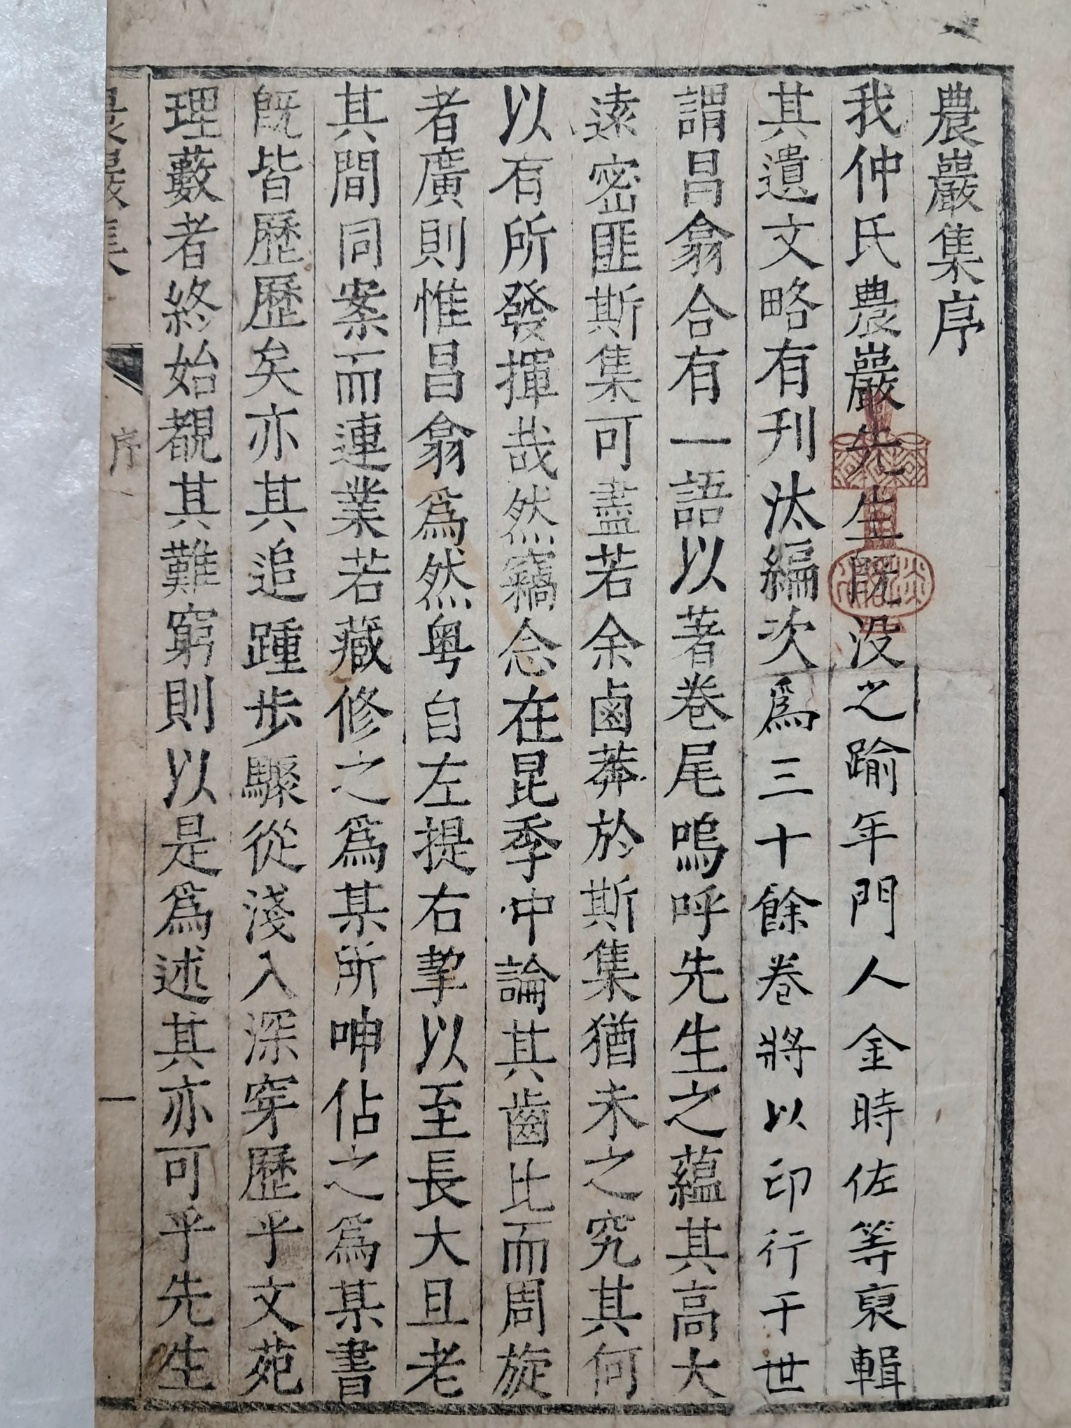 農巖集序
我仲氏農巖先生旣沒之踰年門人金時佐等裒輯
其遺文略有刊汰編次爲三十餘卷將以印行于世
謂昌翕合有一語以著卷尾嗚呼先生之蘊其高大
遠密匪斯集可盡若余鹵莽於斯集猶未之究其何
以有所發揮哉然竊念在昆季中論其齒比而周旋
者廣則惟昌翕爲然粤自左提右挈以至長大且老
其間同案而連業若藏修之爲某所呻佔之爲某書
旣皆歷歷矣亦其追踵步驟從淺入深穿歷乎文苑
理藪者終始覩其難窮則以是爲述其亦可乎先生
農巖集 序 一